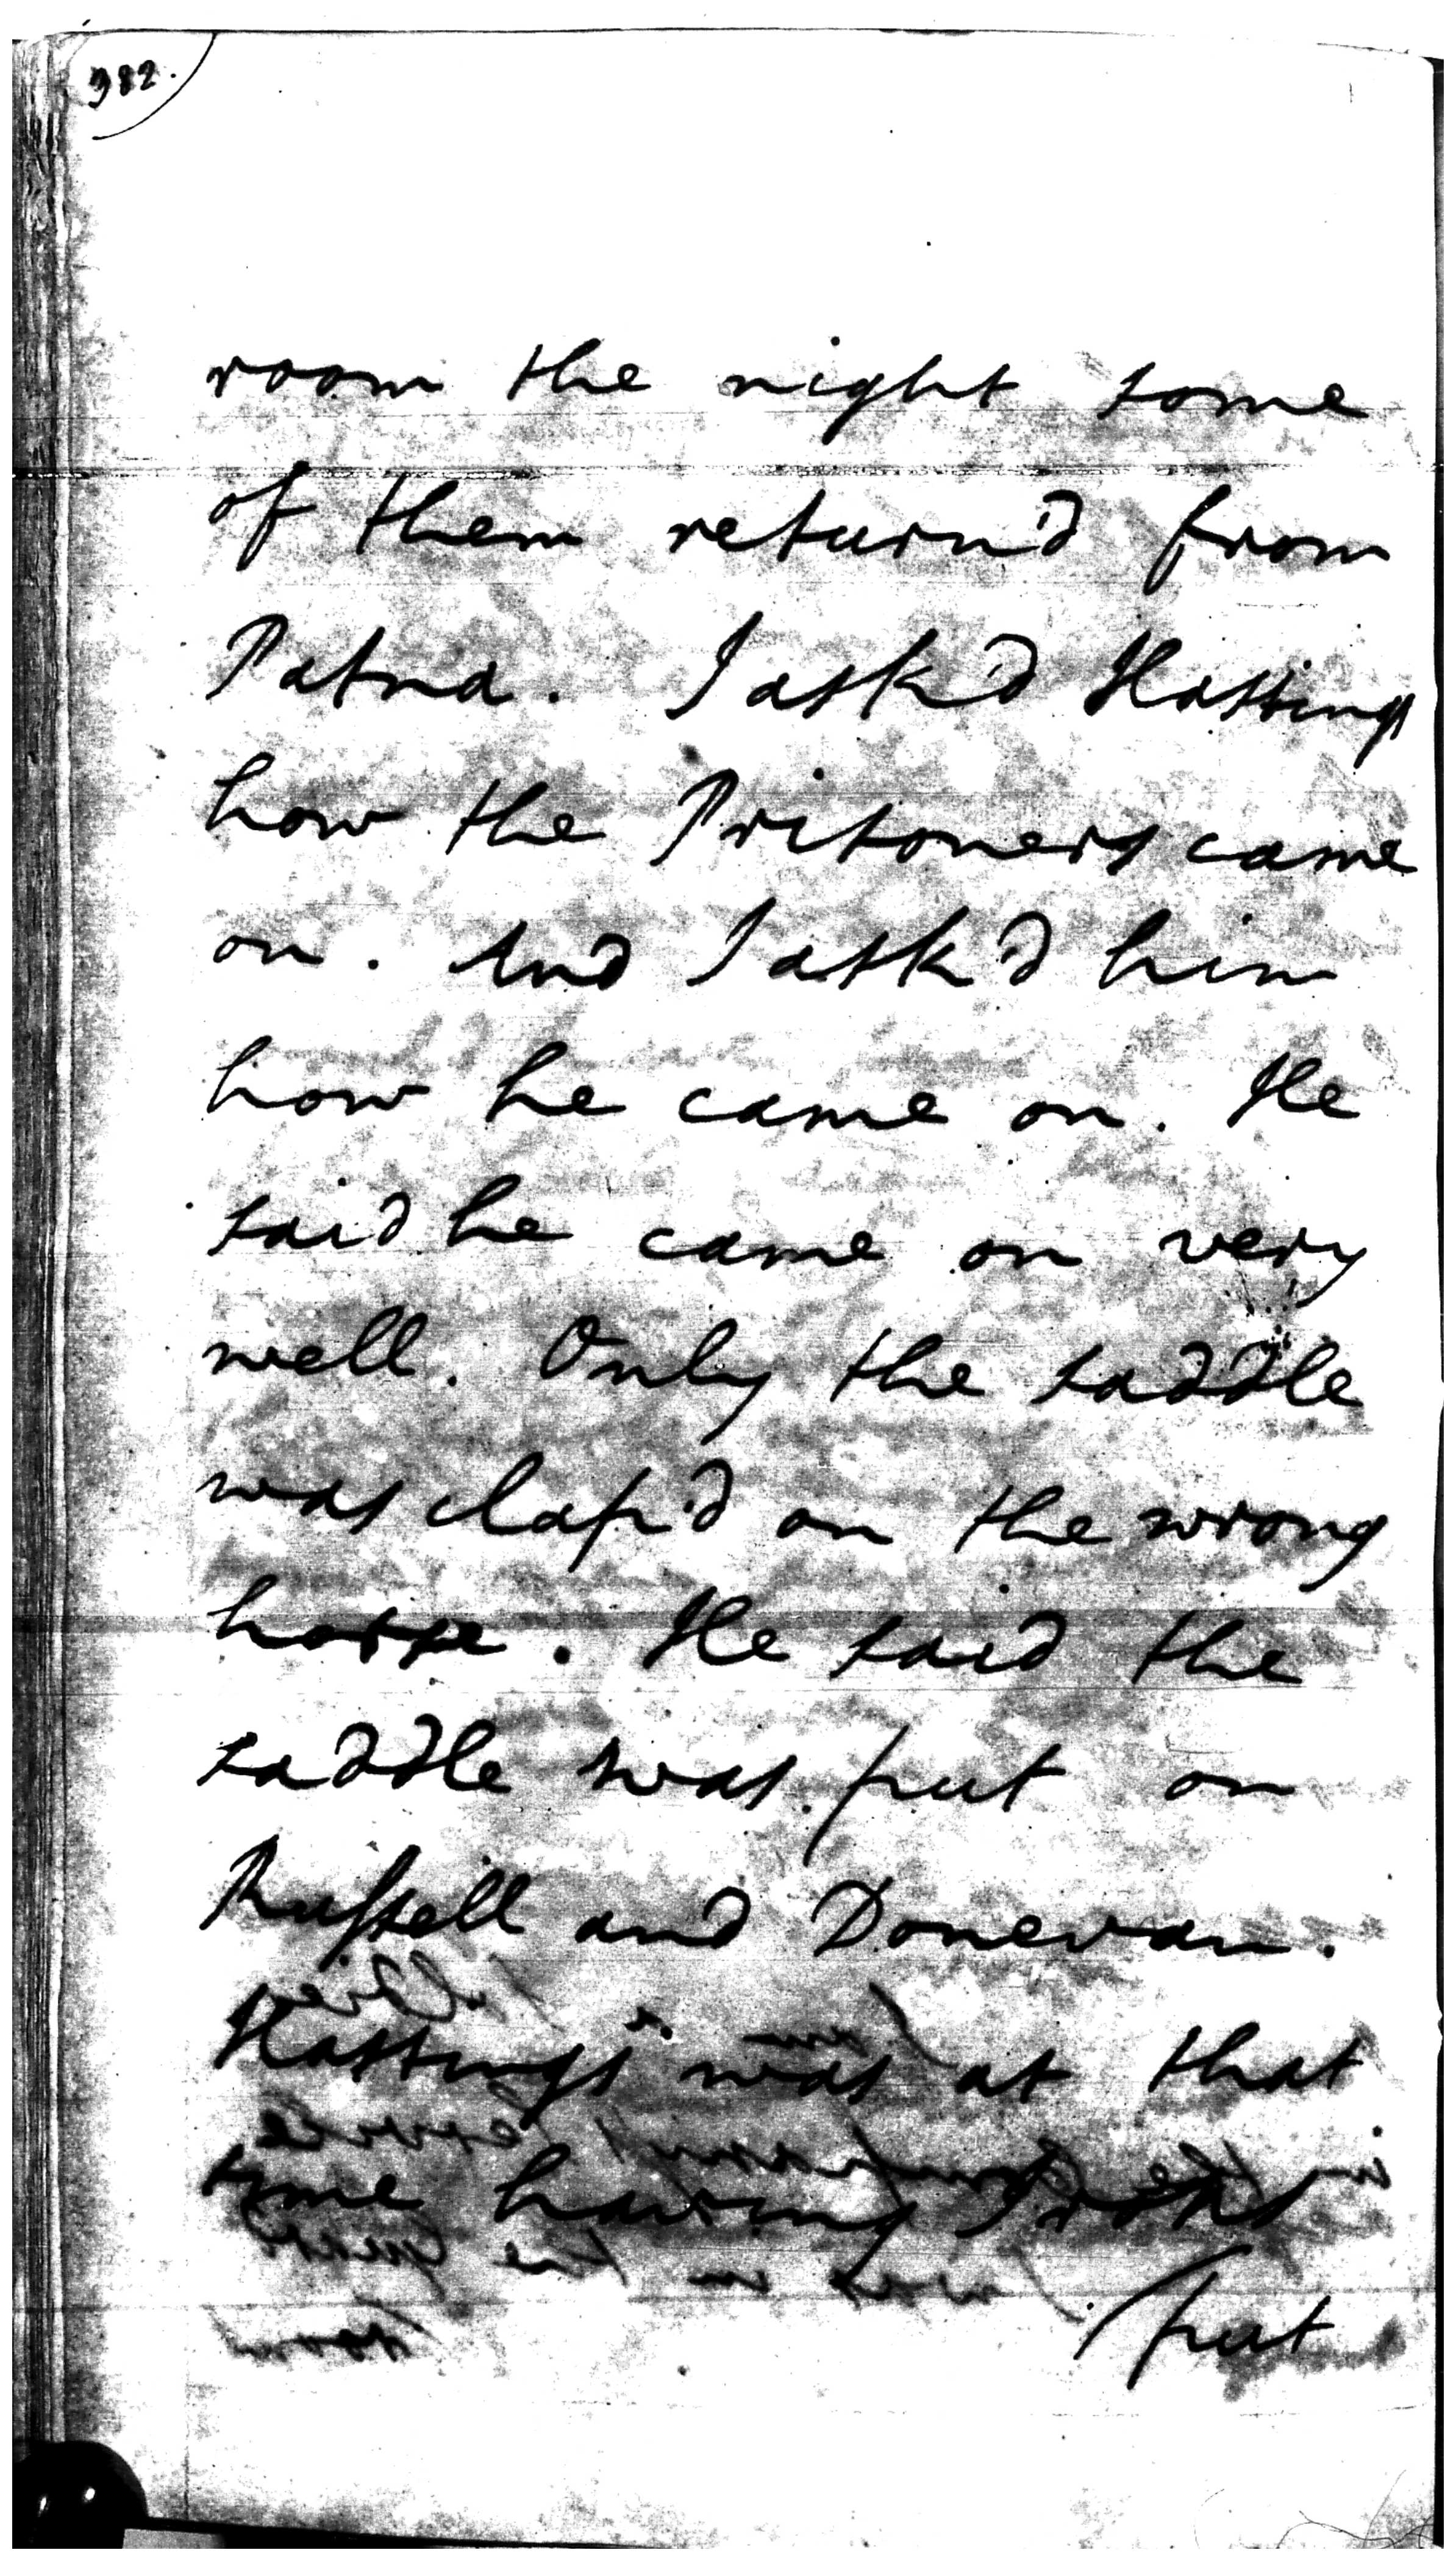 982.
room the night some
of them return'd from
Patna. I ask'd Hastings
how the Prisoners came
on. And I ask'd him
how he came on. He
said he came on very
well. Only the saddle
was clap'd on the wrong
horse. He said the
saddle was put on
Russell and Donevan.
Hastings was at that
time having Irons
put